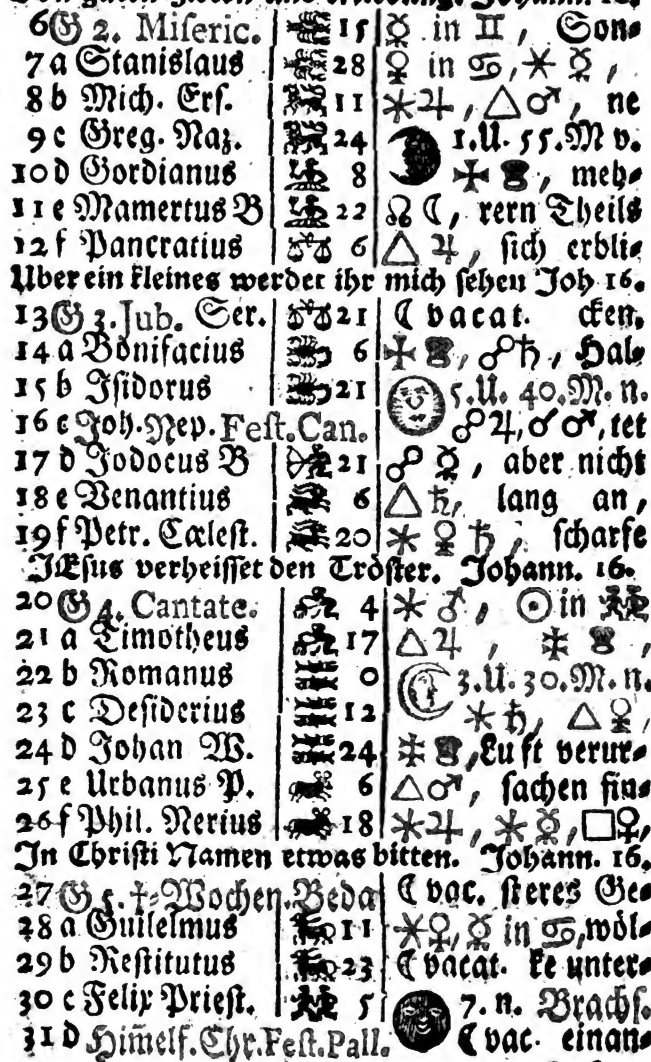 6 G 2. Miſeric. 15 ☿ in ♊, Son⸗
7 a Stanislaus 28 ♀ in ♋, ⚹ ☿,
8 b Mich. Erſ. 11 ⚹ ♃, △ ♂, ne
9 c Greg. Naz. 24 1. U. 55. M v.
10 d Gordianus 8 meh⸗
11 e Mamertus B 22 ☊ ☾, rern Theils
12 f Pancratius ♎ 6 △ ♃, ſich erbli⸗
Uber ein kleines werdet ihr mich ſehen Joh 16.
13 G 3. Jub. Ser. ♎ 21 ☾ vacat. cken,
14 a Bonifacius 6 ☍ ♄, Hal⸗
15 b Iſidorus 21 5. U. 40. M. n.
16 c Joh. Nep. Feſt. Can. ☍ ♃, ☌ ♂, tet
17 d Jodocus B 21 ☍ ☿, aber nicht
18 e Venantius 6 △ ♄, lang an,
19 f Petr. Cœleſt. 20 ⚹ ♀ ♄, ſcharfe
JEſus verheiſſet den Tröſter. Johann. 16.
20 G 4. Cantate. 4 ⚹ ♂, ☉ in ♊
21 a Timotheus 17 △ ♃,
22 b Romanus 0 3. U. 30. M. n.
23 c Deſiderius 12 ⚹ ♄, △ ♀,
24 d Johan W. 24 Luft verur⸗
25 e Urbanus P. 6 △ ♂, ſachen fin⸗
26 f Phil. Nerius 18 ⚹ ♃, ⚹ ☿, □ ♀,
In Chriſti Namen etwas bitten. Johann. 16.
27 G 5. †⸗Wochen. Beda ☾ vac. ſteres Ge⸗
28 a Guilelmus 11 ⚹ ♀, ☿ in ♋, wöl⸗
29 b Reſtitutus 23 ☾ vacat. ke unter⸗
30 c Felix Prieſt. 5 7. n. Brachſ.
31 d Him̃elf. Chr. Feſt. Pall. ☾ vac. einan⸗